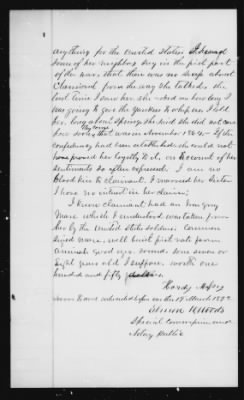 anything for the United States. I heard
some of her neighbors say in the first part
of the war, that there was no secesh about
Claimant from the way she talked. the
last time I saw her she asked me how long I
was going to give the Yankees to whip us I told
her, long about spring she said she did not care
how soon, that was in November 1864 — If the
confederacy had been established she could not
have proved her loyalty to it, on account of her
sentiments so often expressed. I am no
blood kin to claimant. I married her sister
I have no interest in her claim;
I knew claimant had an iron gray
Mare which I understood was taken from
her by the United States soldiers. Common
sized mare, well built first rate farm
animal good age. sound. some seven or
eight years old I suppose. worth one
hundred and fifty dollars.
Hardy
sworn to and subscribed before me this 17 March 1873
Woods
Special Commissioner and
Notary Public